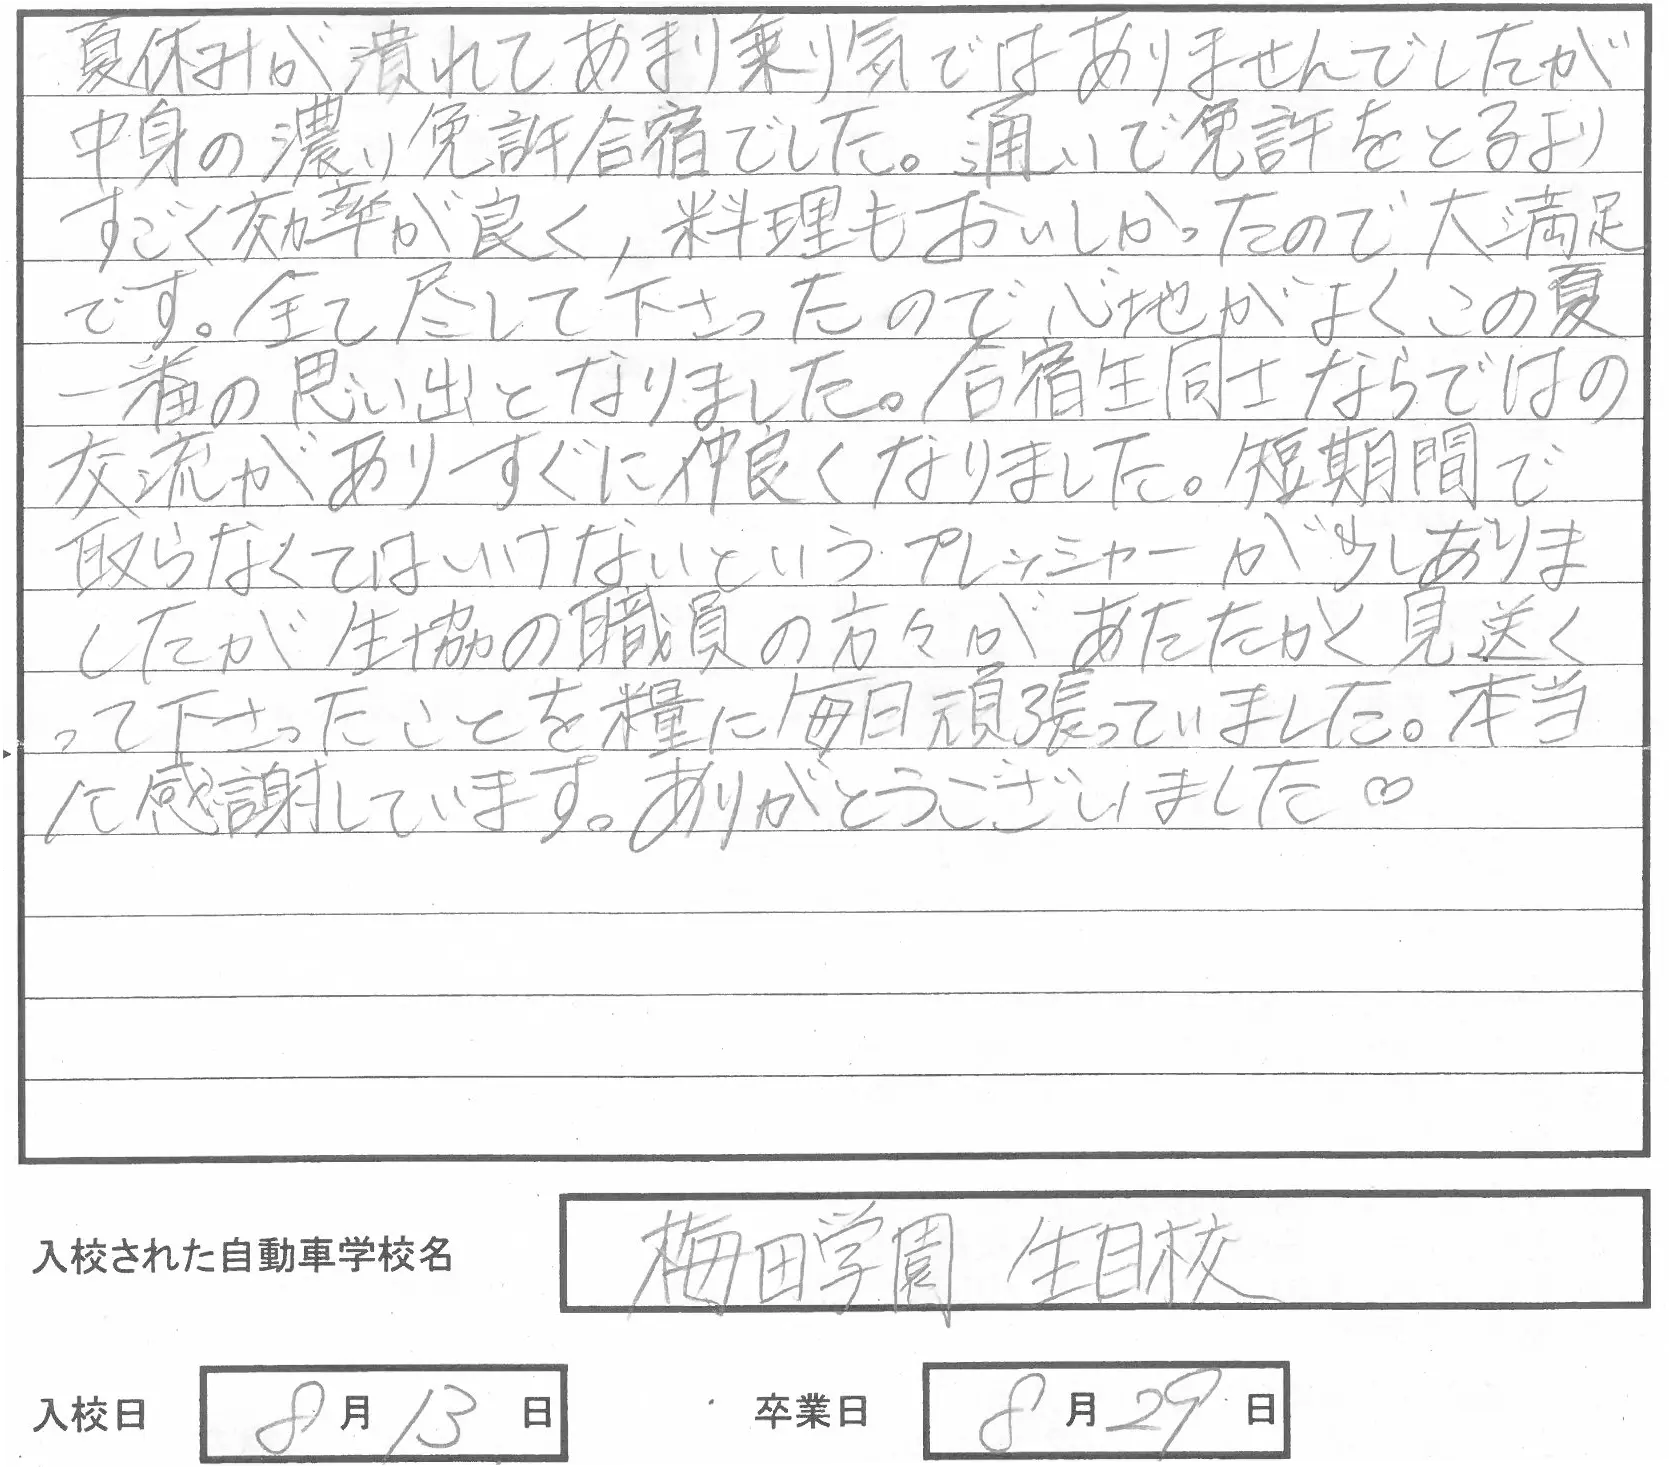 夏休みが潰れてあまり乗り気ではありませんでしたが
中身の濃い免許合宿でした。通いで免許をとるより
すごく効率が良く,料理もおいしかったので大満足
です。全て尽して下さったので心地がよくこの夏
一番の思い出となりました。合宿生同士ならではの
交流がありすぐに仲良くなりました。短期間で
取らなくてはいけないというプレッシャーが少しありま
したが生協の職員の方々があたたかく見送く
って下さったことを糧に毎日頑張っていました。本当
に感謝しています。ありがとうございました♡
入校された自動車学校名 梅田学園 生目校
入校日 8月13日 卒業日 8月29日